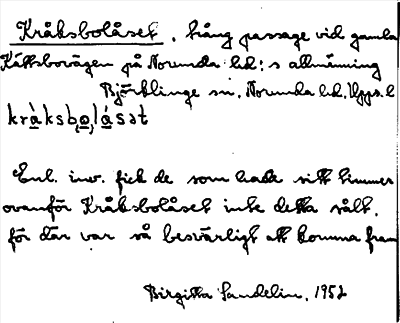 Kråksbolåset, trång passage vid gamla
Kättsbovägen på Norunda hd:s allmänning
Björklinge sn, Norunda hd, Upps. l
kràksbo̥låsət
Enl. inv. fick de som hade sitt timmer
ovanför Kråksbolåset inte detta sålt,
för där var så besvärligt att komma fram
Birgitta Sandelin, 1952